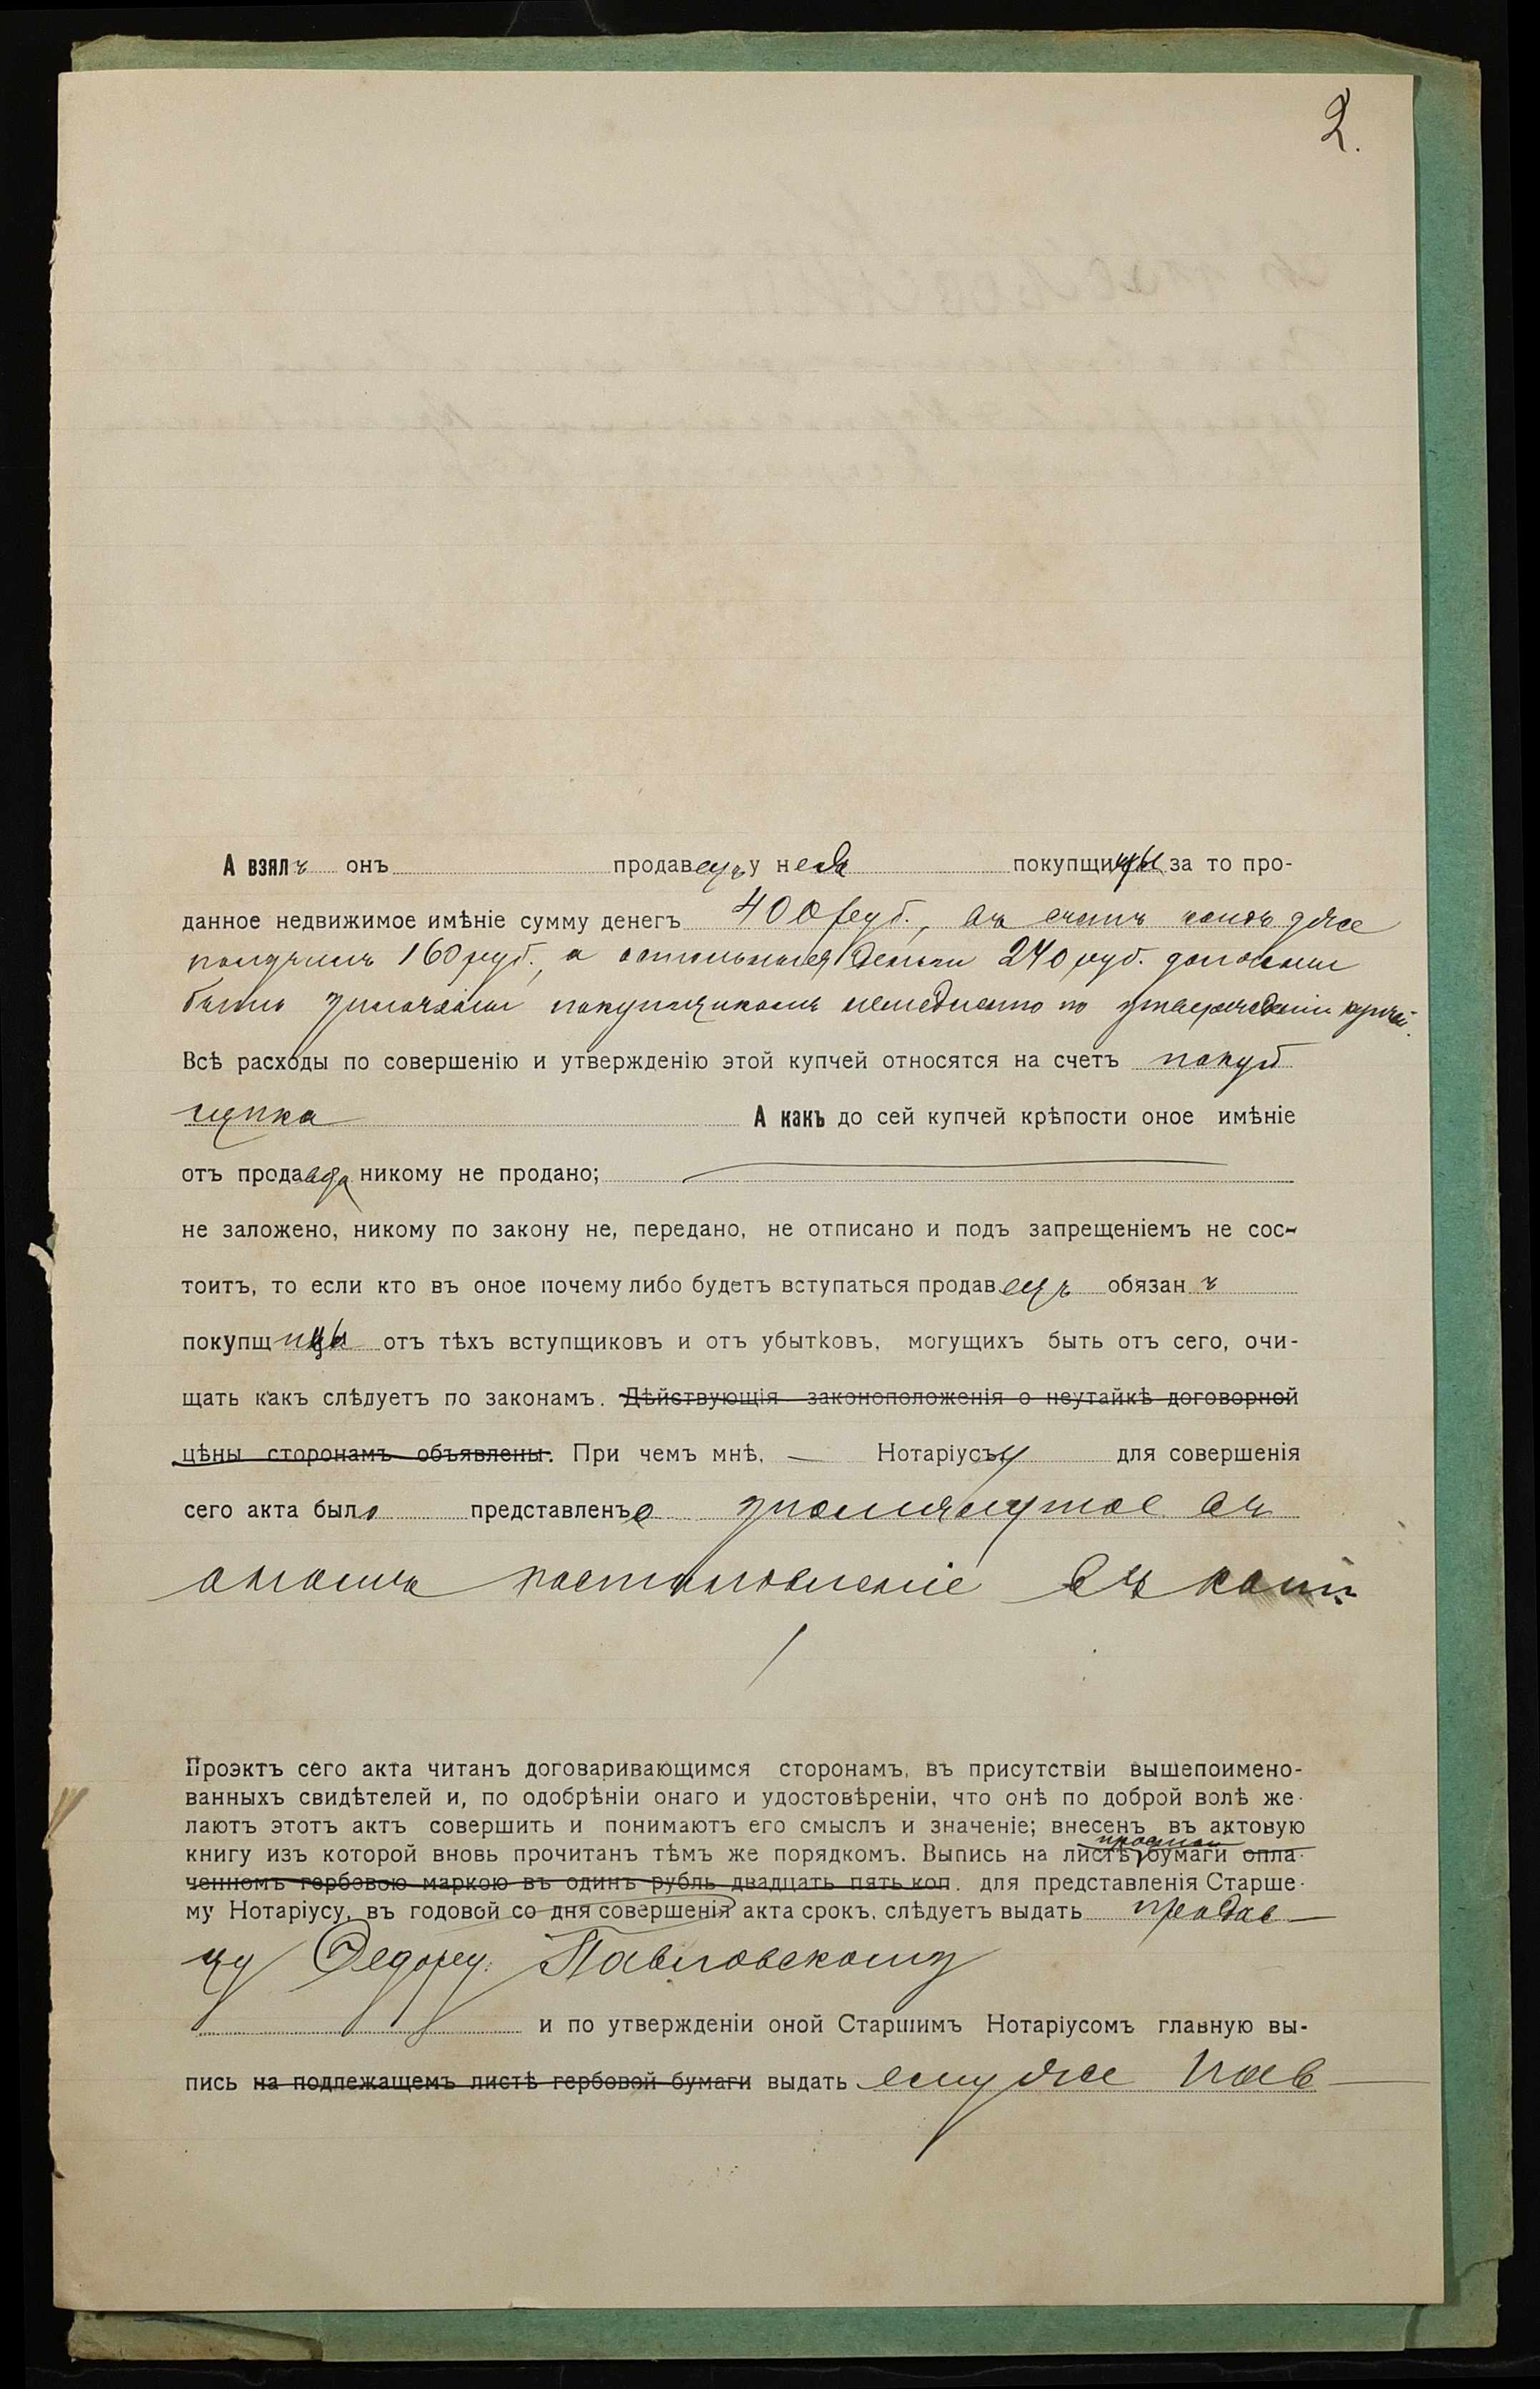 2.
А взялъ онъ продавецъ у нея покупщицы за то про-
данное недвижимое имѣніе сумму денегъ 400 руб., въ счетъ коихъ уже
получилъ 160 руб., а остальныя деньги 240 руб. должны
быть уплочены покупщикомъ немедленно по утвержденіи купчей.
Всѣ расходы по совершенію и утвержденію этой купчей относятся на счетъ покуп
щика А какъ до сей купчей крѣпости оное имѣніе
отъ продавца никому не продано;
не заложено, никому по закону не, передано, не отписано и подъ запрещеніемъ не сос-
тоитъ, то если кто въ оное почему либо будетъ вступаться продавецъ обязанъ
покупщицы отъ тѣхъ вступщиковъ и отъ убытковъ, могущихъ быть отъ сего, очи-
щать какъ слѣдуетъ по законамъ. Дѣйствующія законоположенія о неутайкѣ договорной
цѣны сторонамъ объявлены. При чемъ мнѣ, — Нотаріусу для совершенія
сего акта было представлено упомянутое въ
актѣ постановленіе въ копіи
Проэктъ сего акта читанъ договаривающимся сторонамъ, въ присутствіи вышепоимено-
ванныхъ свидѣтелей и, по одобрѣніи онаго и удостовѣреніи, что онѣ по доброй волѣ же-
лаютъ этотъ актъ совершить и понимаютъ его смыслъ и значеніе; внесенъ въ актовую
книгу изъ которой вновь прочитанъ тѣмъ же порядкомъ. Выпись на листѣ простой бумаги опла-
ченномъ гербовою маркою въ одинъ рубль двадцать пять коп. для представленія Старше-
му Нотаріусу, въ годовой со дня совершенія акта срокъ, слѣдуетъ выдать продав-
цу Федору Павловскому
и по утвержденіи оной Старшимъ Нотаріусомъ главную вы-
пись на подлежащемъ листѣ гербовой бумаги выдать ему же Пав-